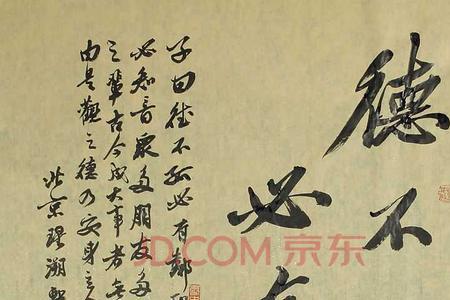 德不
必
子曰德不孤必有鄰
必知音眾多朋友多
之輩古今成大事者
由是觀之德乃安身立
北京
JD.COM 京东